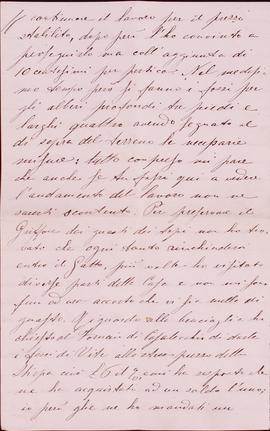 continuare il lavoro per il prezzo
stabilito, dopo però l'ho convinto a
proseguirlo ma coll'aggiunta di
10 centesimi per pertica. Nel medesi
mo tempo però si fanno i fossi per
gli alberi profondi tre piedi e
larghi quattro avendo segnato al
di sopra del terreno le
misure; tutto compreso mi pare
che anche se tu fossi qui a vedere
l'andamento del lavoro non ne
saresti scontento. Per preservare il
dai guasti dei topi non ho tro
vato che ogni tanto rinchiudere
entro il Gatto, più volte ho visitato
diverse parti della Casa e non mi son
fin ad ora accorto che vi sia nulla di
guasto. Riguardo alle ho
chiesto al di darle
di Vite allo stesso prezzo della
Stipa cioè mi rispose che
ne ha acquistati ad un soldo l'uno;
io però che ne ha mandati un